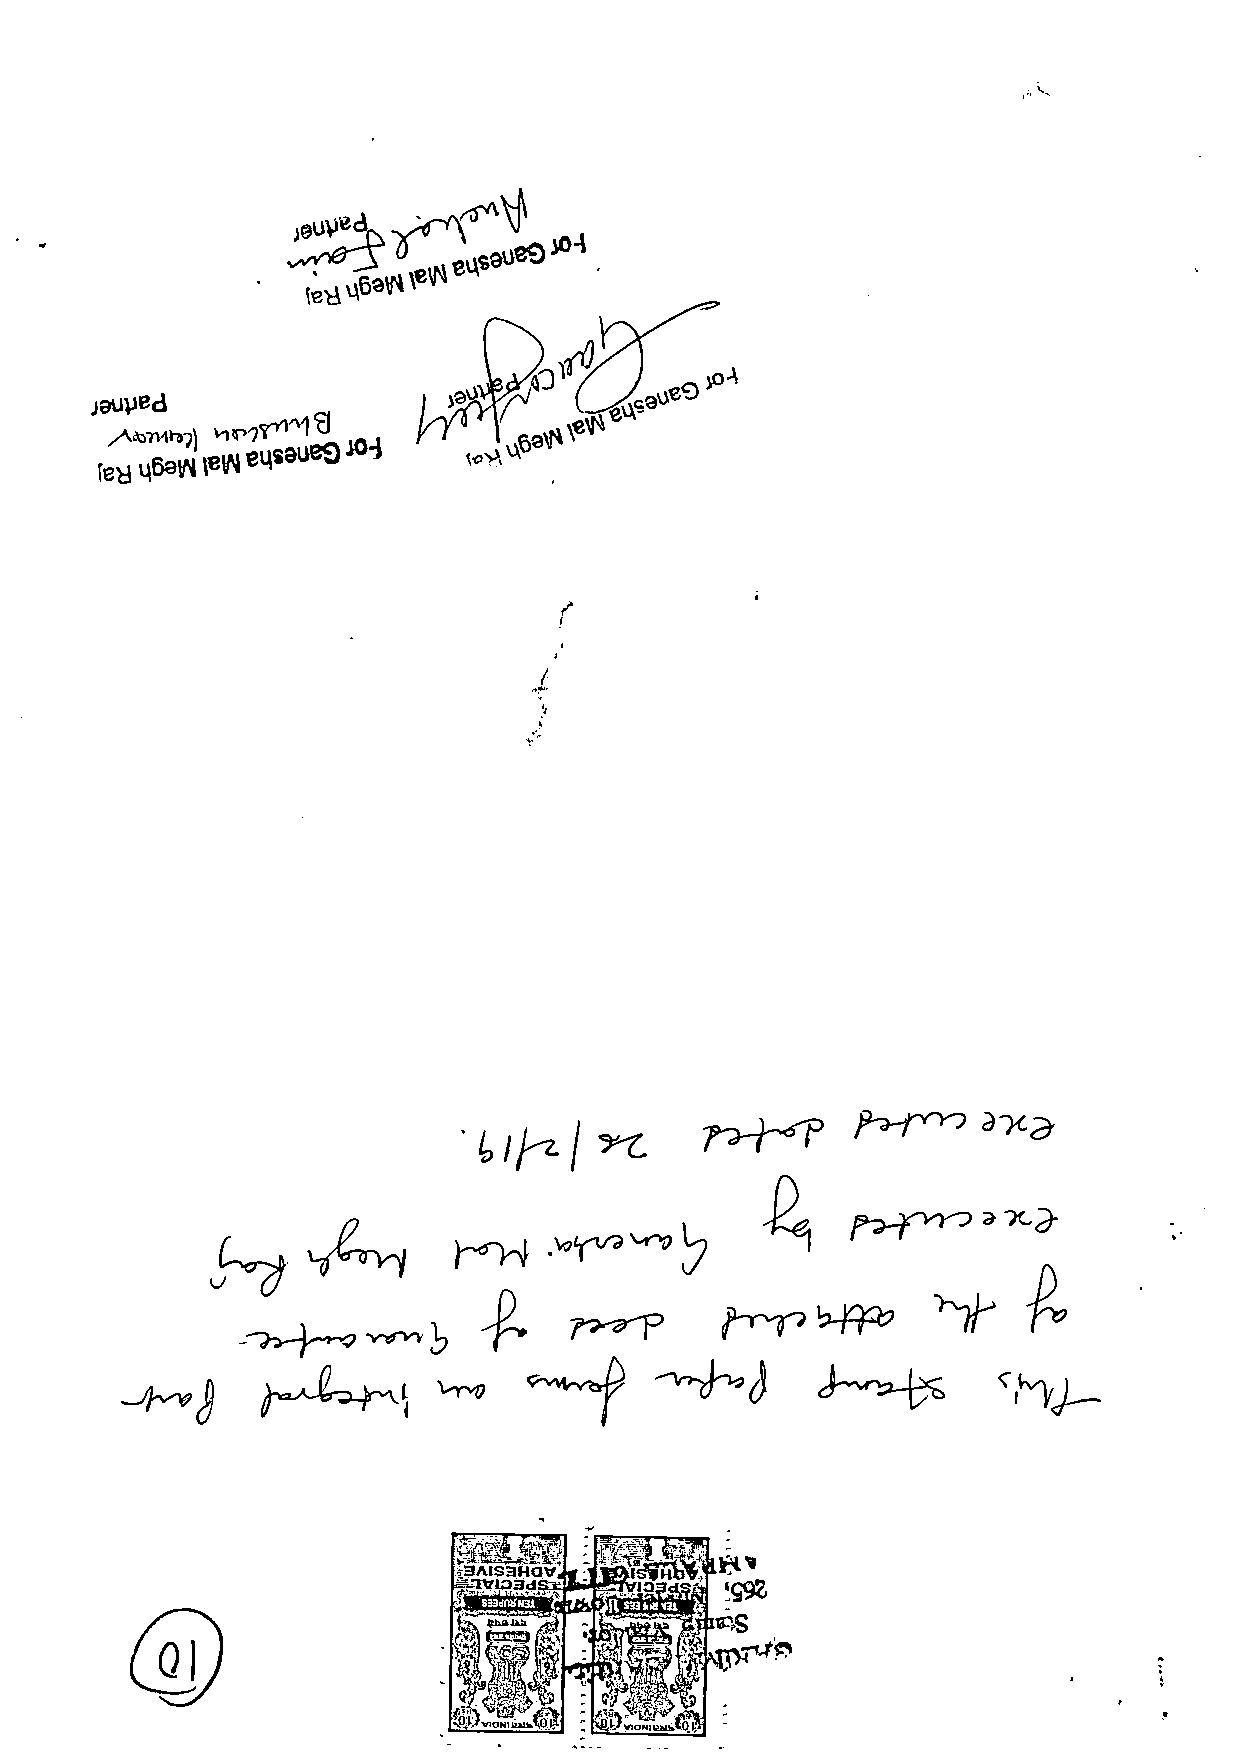 10
INDIA
10
10
INDIA
10
TEN RUPEES
SPECIAL
ADHESIVE
SPECIAL
ADHESIVE
Stamp
265,
This stamp paper forms an integral part
of the attached deed of Guarantee
executed by Ganesha Mal Megh Raj
executed dated 28/2/19.
For Ganesha Mal Megh Raj
Bhushan Kumar
Partner
For Ganesha Mal Megh Raj
Partner
For Ganesha Mal Megh Raj
Anchal Jain
Partner